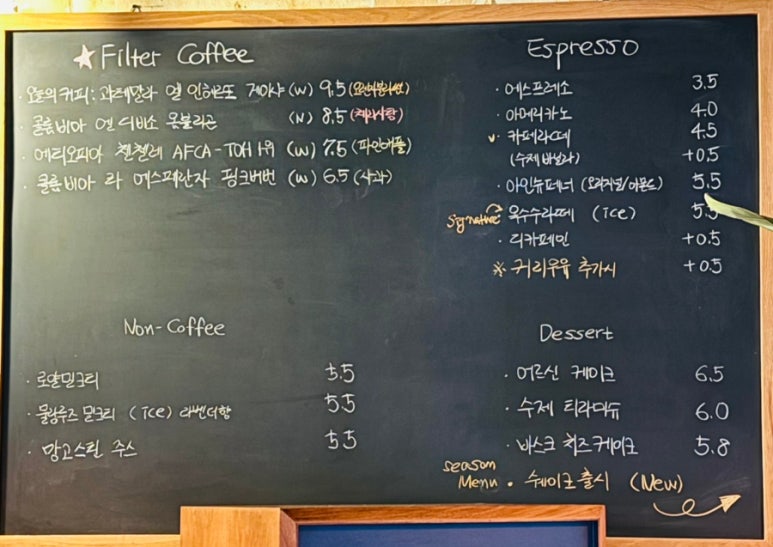 ★ Filter Coffee
· 오늘의커피: 과테말라 엘 인헤르또 게이샤 (W) 9.5
· 콜롬비아 엔 디비소 옴블리곤 (N) 8.5 (체리사탕)
· 에티오피아 첼첼레 AFCA-TOH 1위 (W) 7.5 (파인애플)
· 콜롬비아 라 에스페란자 핑크버번 (W) 6.5 (사과)
Espresso
· 에스프레소 3.5
· 아메리카노 4.0
· 카페라떼 4.5
(수제 바닐라) +0.5
· 아인슈페너 (오리지널/아몬드) 5.5
signature 옥수수라떼 (ice) 5.5
· 디카페인 +0.5
※ 귀리우유 추가시 +0.5
Non-Coffee
· 로얄밀크티 5.5
· 물랑루즈 밀크티 (ice) 라벤더향 5.5
· 망고스틴 주스 5.5
Dessert
· 어르신 케이크 6.5
· 수제 티라미슈 6.0
· 바스크 치즈케이크 5.8
season
Menu · 쉐이크 출시 (New)